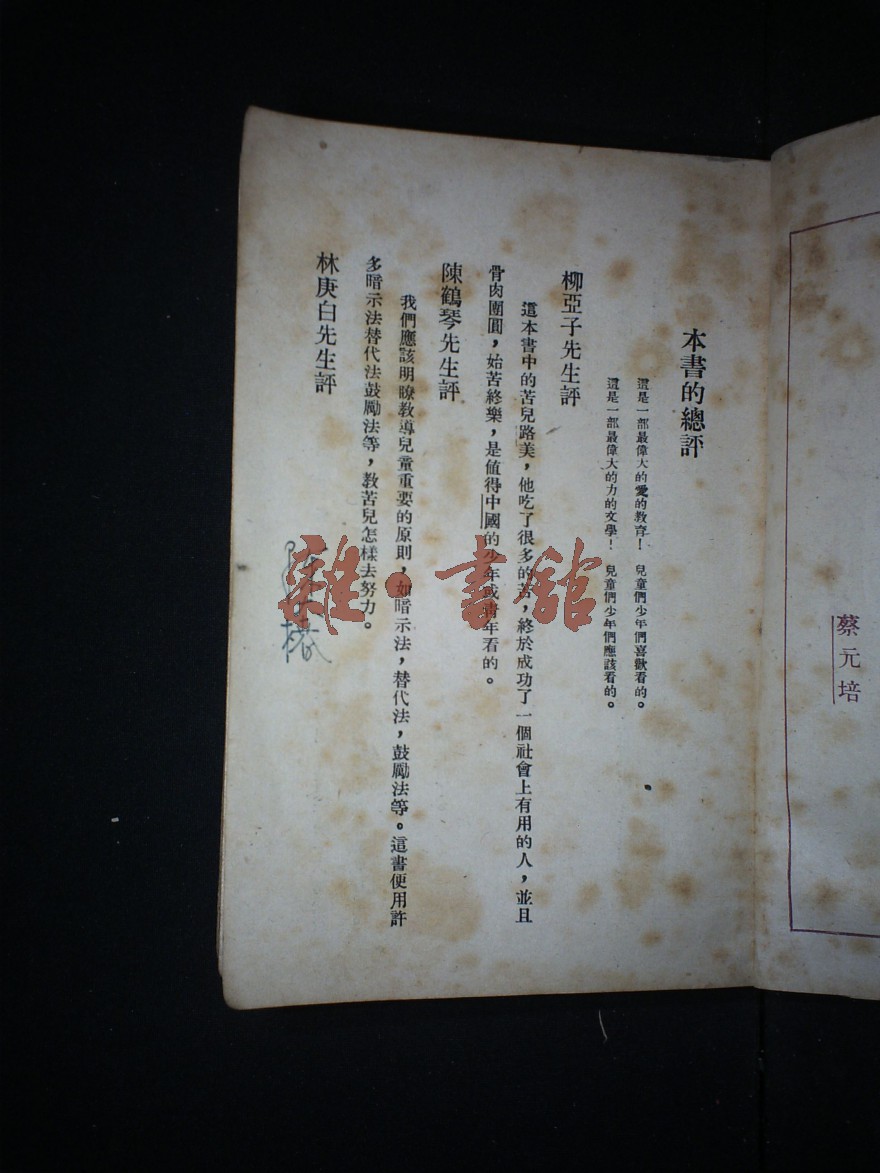 蔡元培
本書的總評
這是一部最偉大的愛的教育！ 兒童們少年們喜歡看的。
這是一部最偉大的力的文學！ 兒童們少年們應該看的。
柳亞子先生評
這本書中的苦兒路美，他吃了很多的苦，終於成功了一個社會上有用的人，並且
骨肉團圓，始苦終樂，是值得中國的少年或青年看的。
陳鶴琴先生評
我們應該明瞭教導兒童重要的原則，如暗示法，替代法，鼓勵法等。這書便用許
多暗示法替代法鼓勵法等，教苦兒怎樣去努力。
林庚白先生評
雜·書館